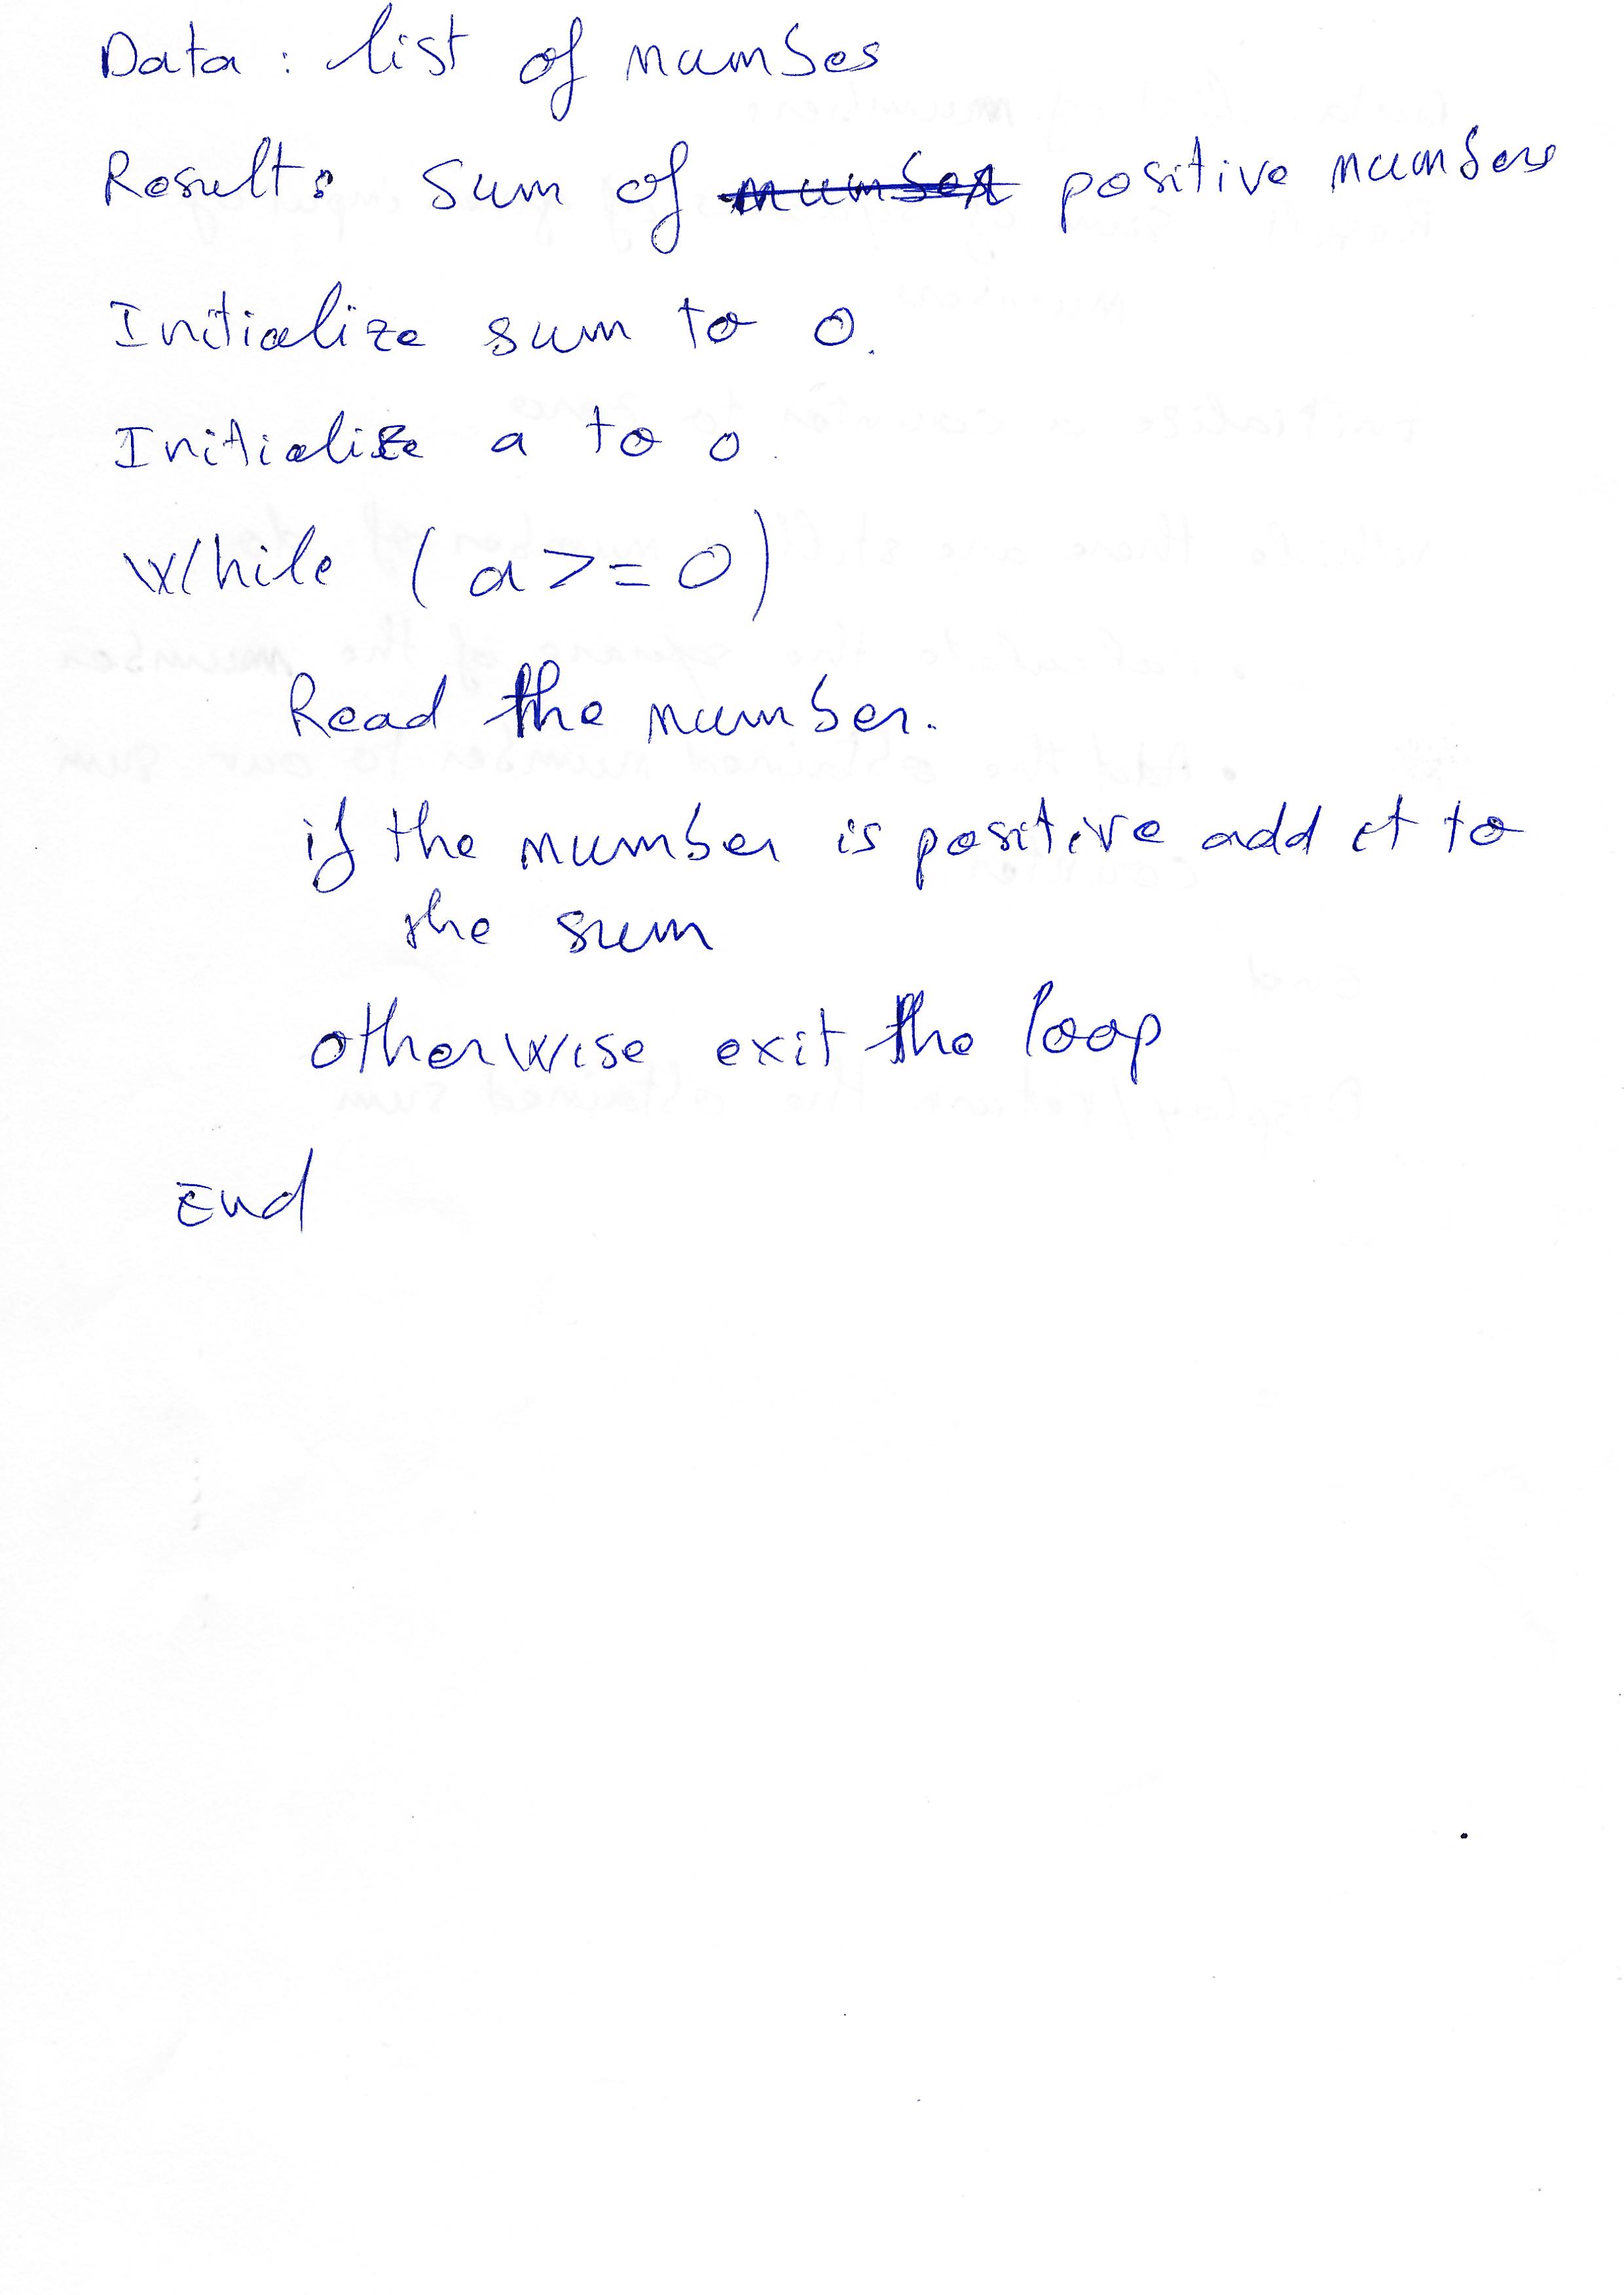 Data : list of numbes
Result: Sum of positive numbers
Initialize sum to 0.
Initialize a to 0.
While (a >= 0)
Read the number.
if the number is positive add it to
the sum
otherwise exit the loop
End